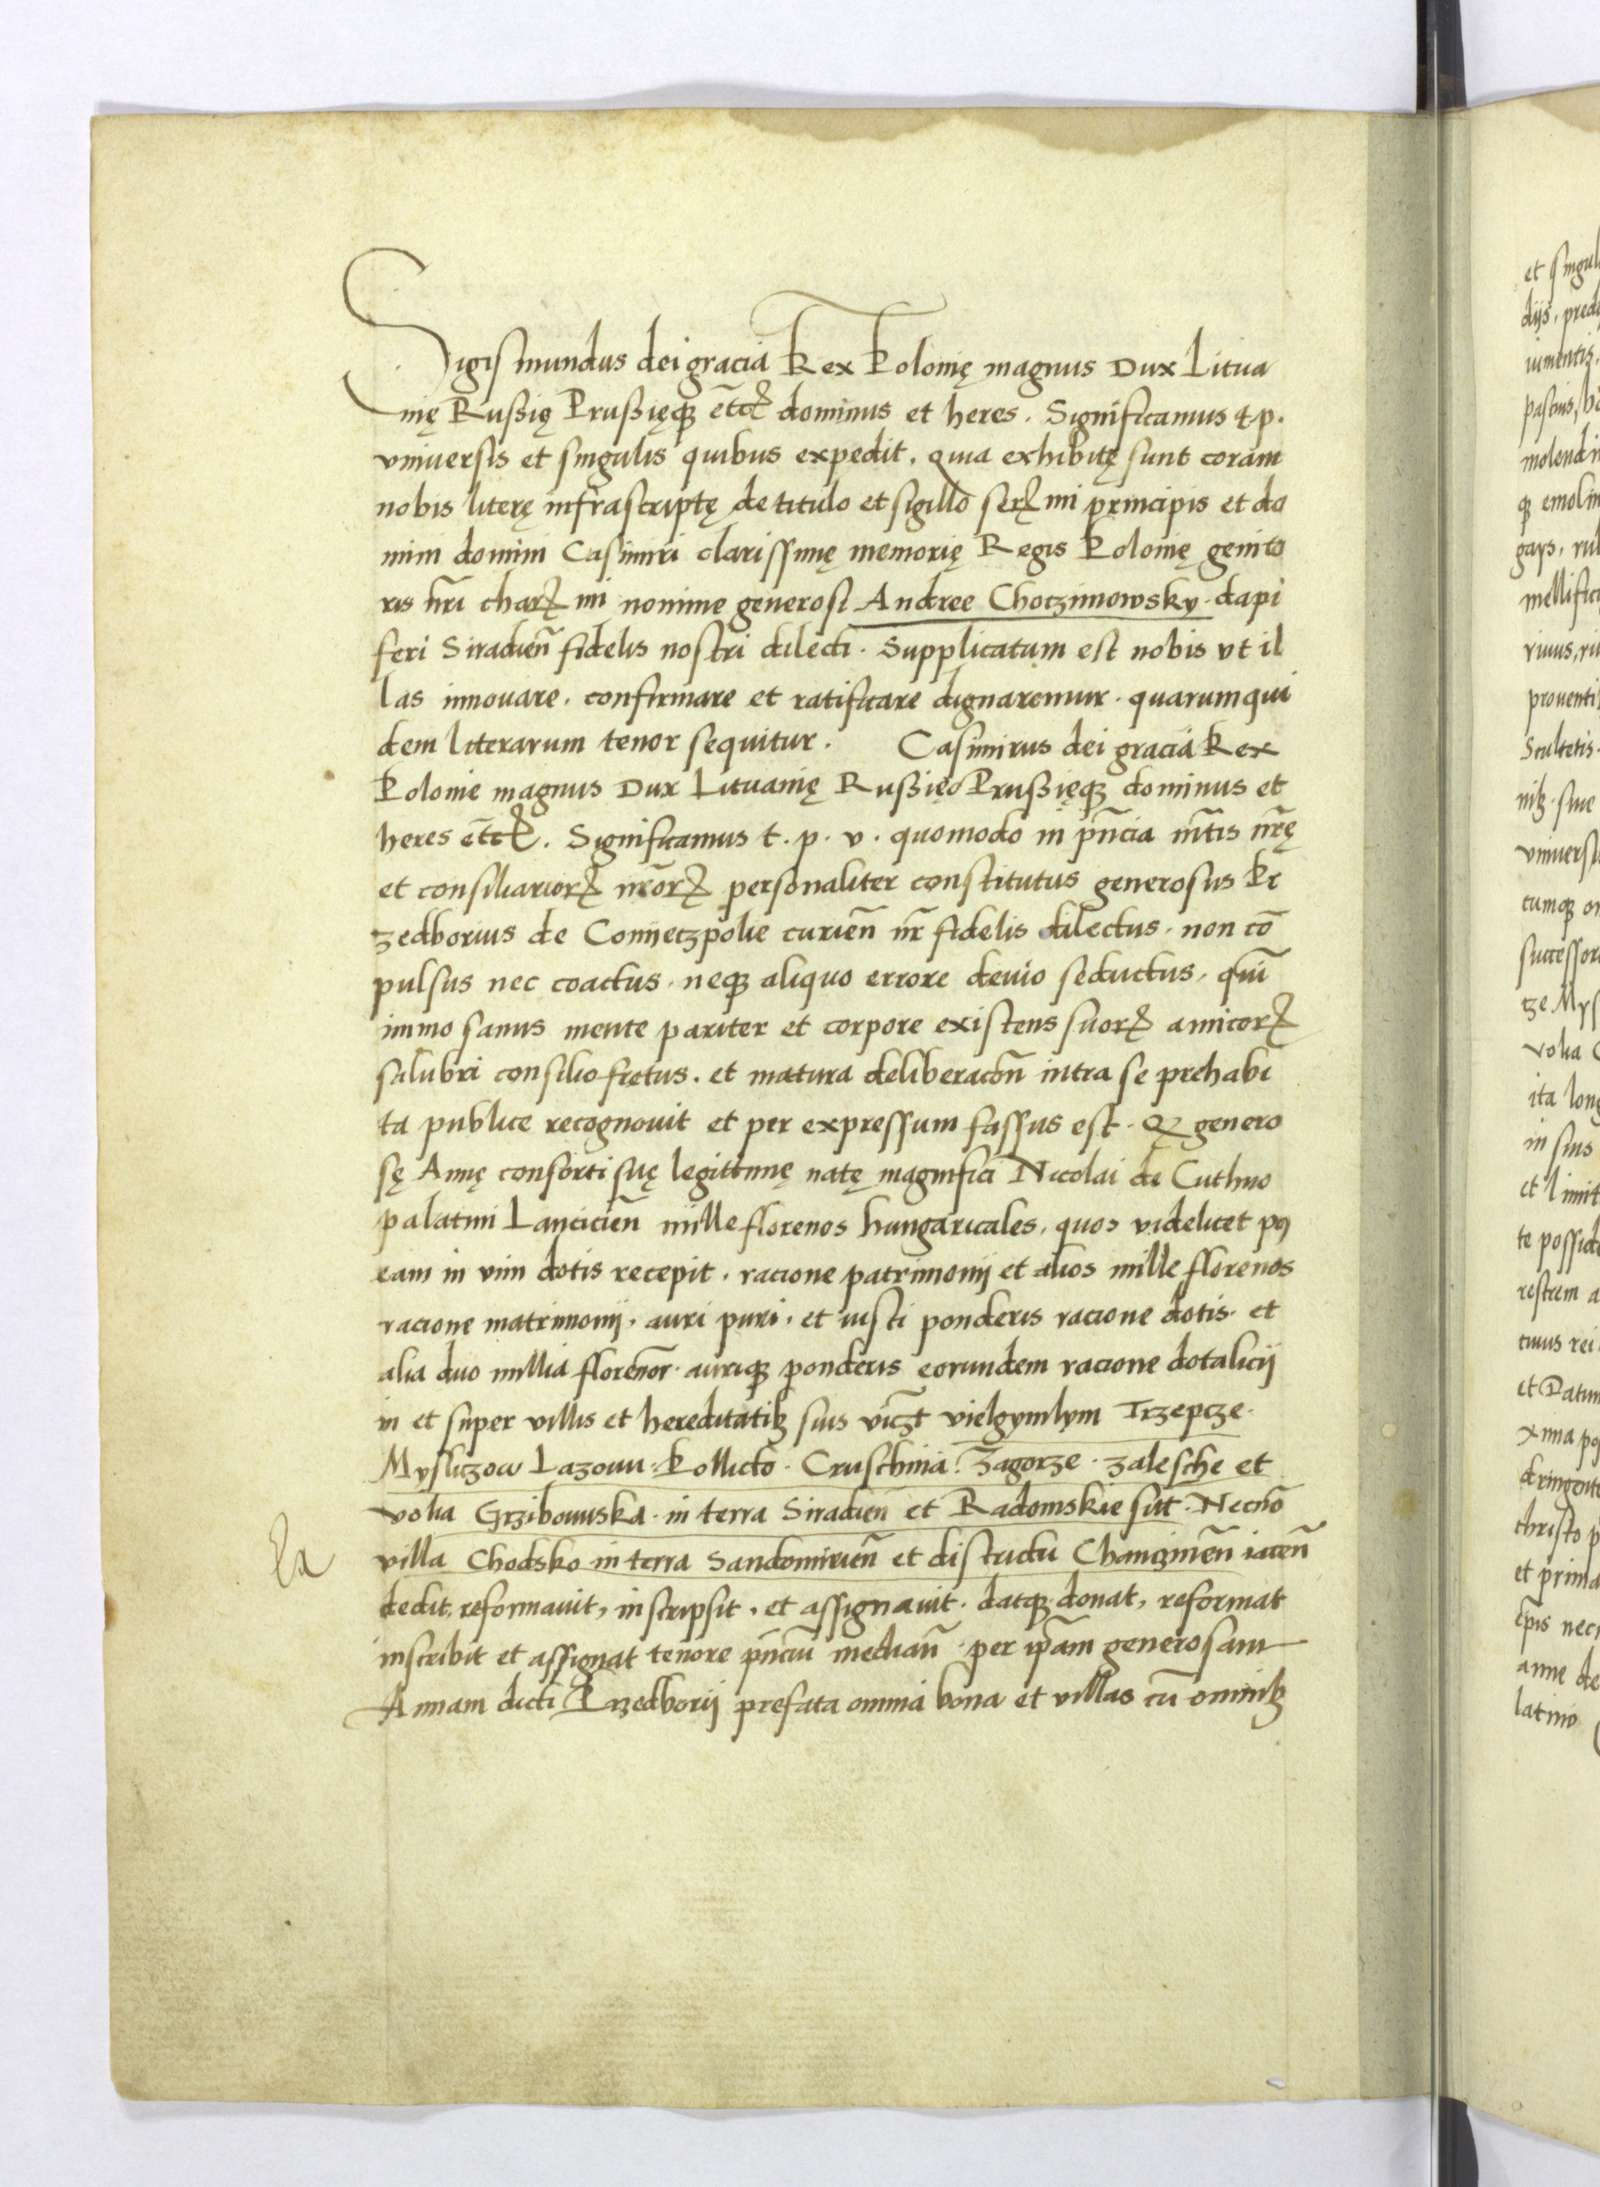 Sigismundus dei gracia Rex Polonię magnus Dux Litua
nię Rußię Prußięq; etc̃ dominus et heres. Significamus t.p.
vniuersis et singulis quibus expedit. quia exhibitę sunt coram
nobis literę infrascriptę de titulo et sigillo serꝫmi principis et do
mini domini Casimiri clarissimę memorię Regis Polonię genito
ris nr̃i charꝫmi nomine generosi Andree Choczimowsky dapi
feri Siradien̄ fidelis nostri dilecti. Supplicatum est nobis vt il
las innouare. confirmare et ratificare dignaremur. quarum qui
dem literarum tenor sequitur. Casimirus dei gracia Rex
Polonie magnus Dux Lituanię Rußię Prußięq; dominus et
heres etc̃. Significamus t. p. v. quomodo in pn̄cia mt̄is nr̄ę
et consiliarioꝝ nr̄oꝝ personaliter constitutus generosus Pr
zedborius de Coniieczpolie curien̄ nr̄ fidelis dilectus. non cō
pulsus nec coactus. neq; aliquo errore deuio seductus. quī
immo sanus mente pariter et corpore existens suoꝝ amicoꝝ
salubri consilio fretus. et matura deliberacōn̄ intra se prehabi
ta publice recognouit et per expressum fassus est. Qꝫ genero
sę Annę consorti suę legittimę natę magnifici Nicolai de Cuthno
palatini Lancicien̄ mille florenos hungaricales. quos videlicet pꝯ
eam in vim dotis recepit. racione patrimonij et alios mille florenos
racione matrimonij. auri puri. et iusti ponderis racione dotis. et
alia duo millia florenoꝝ. auriq; ponderis eorundem racione dotalicij
in et super villis et hereditatibꝫ suis vicꝫt vielgymlym Trzepcze.
Mysliczow Lazowu. Pollicto. Cruschina. Zagorze. zalesche et
volia Grzibowska. in terra Siradien̄ et Radomskie sūt. Necnō
villa Chodsko in terra Sandomirien̄ et districtu Chanczinen̄ iacen̄
dedit, reformauit, inscripsit. et assignauit. datq; donat, reformat
inscribit et assignat tenore pn̄ciū median̄. per ip̄am generosam
Annam dicti Przedborij prefata omnia bona et villas cū omnibꝫ
et singul
dijs. pred
molendi
mellifici
prouenti
Scultetis.
siue
vniuersi
successor
volia
ita long
in suis
et limit
te possid
et Datum
christo p
et prima
anne de
latino